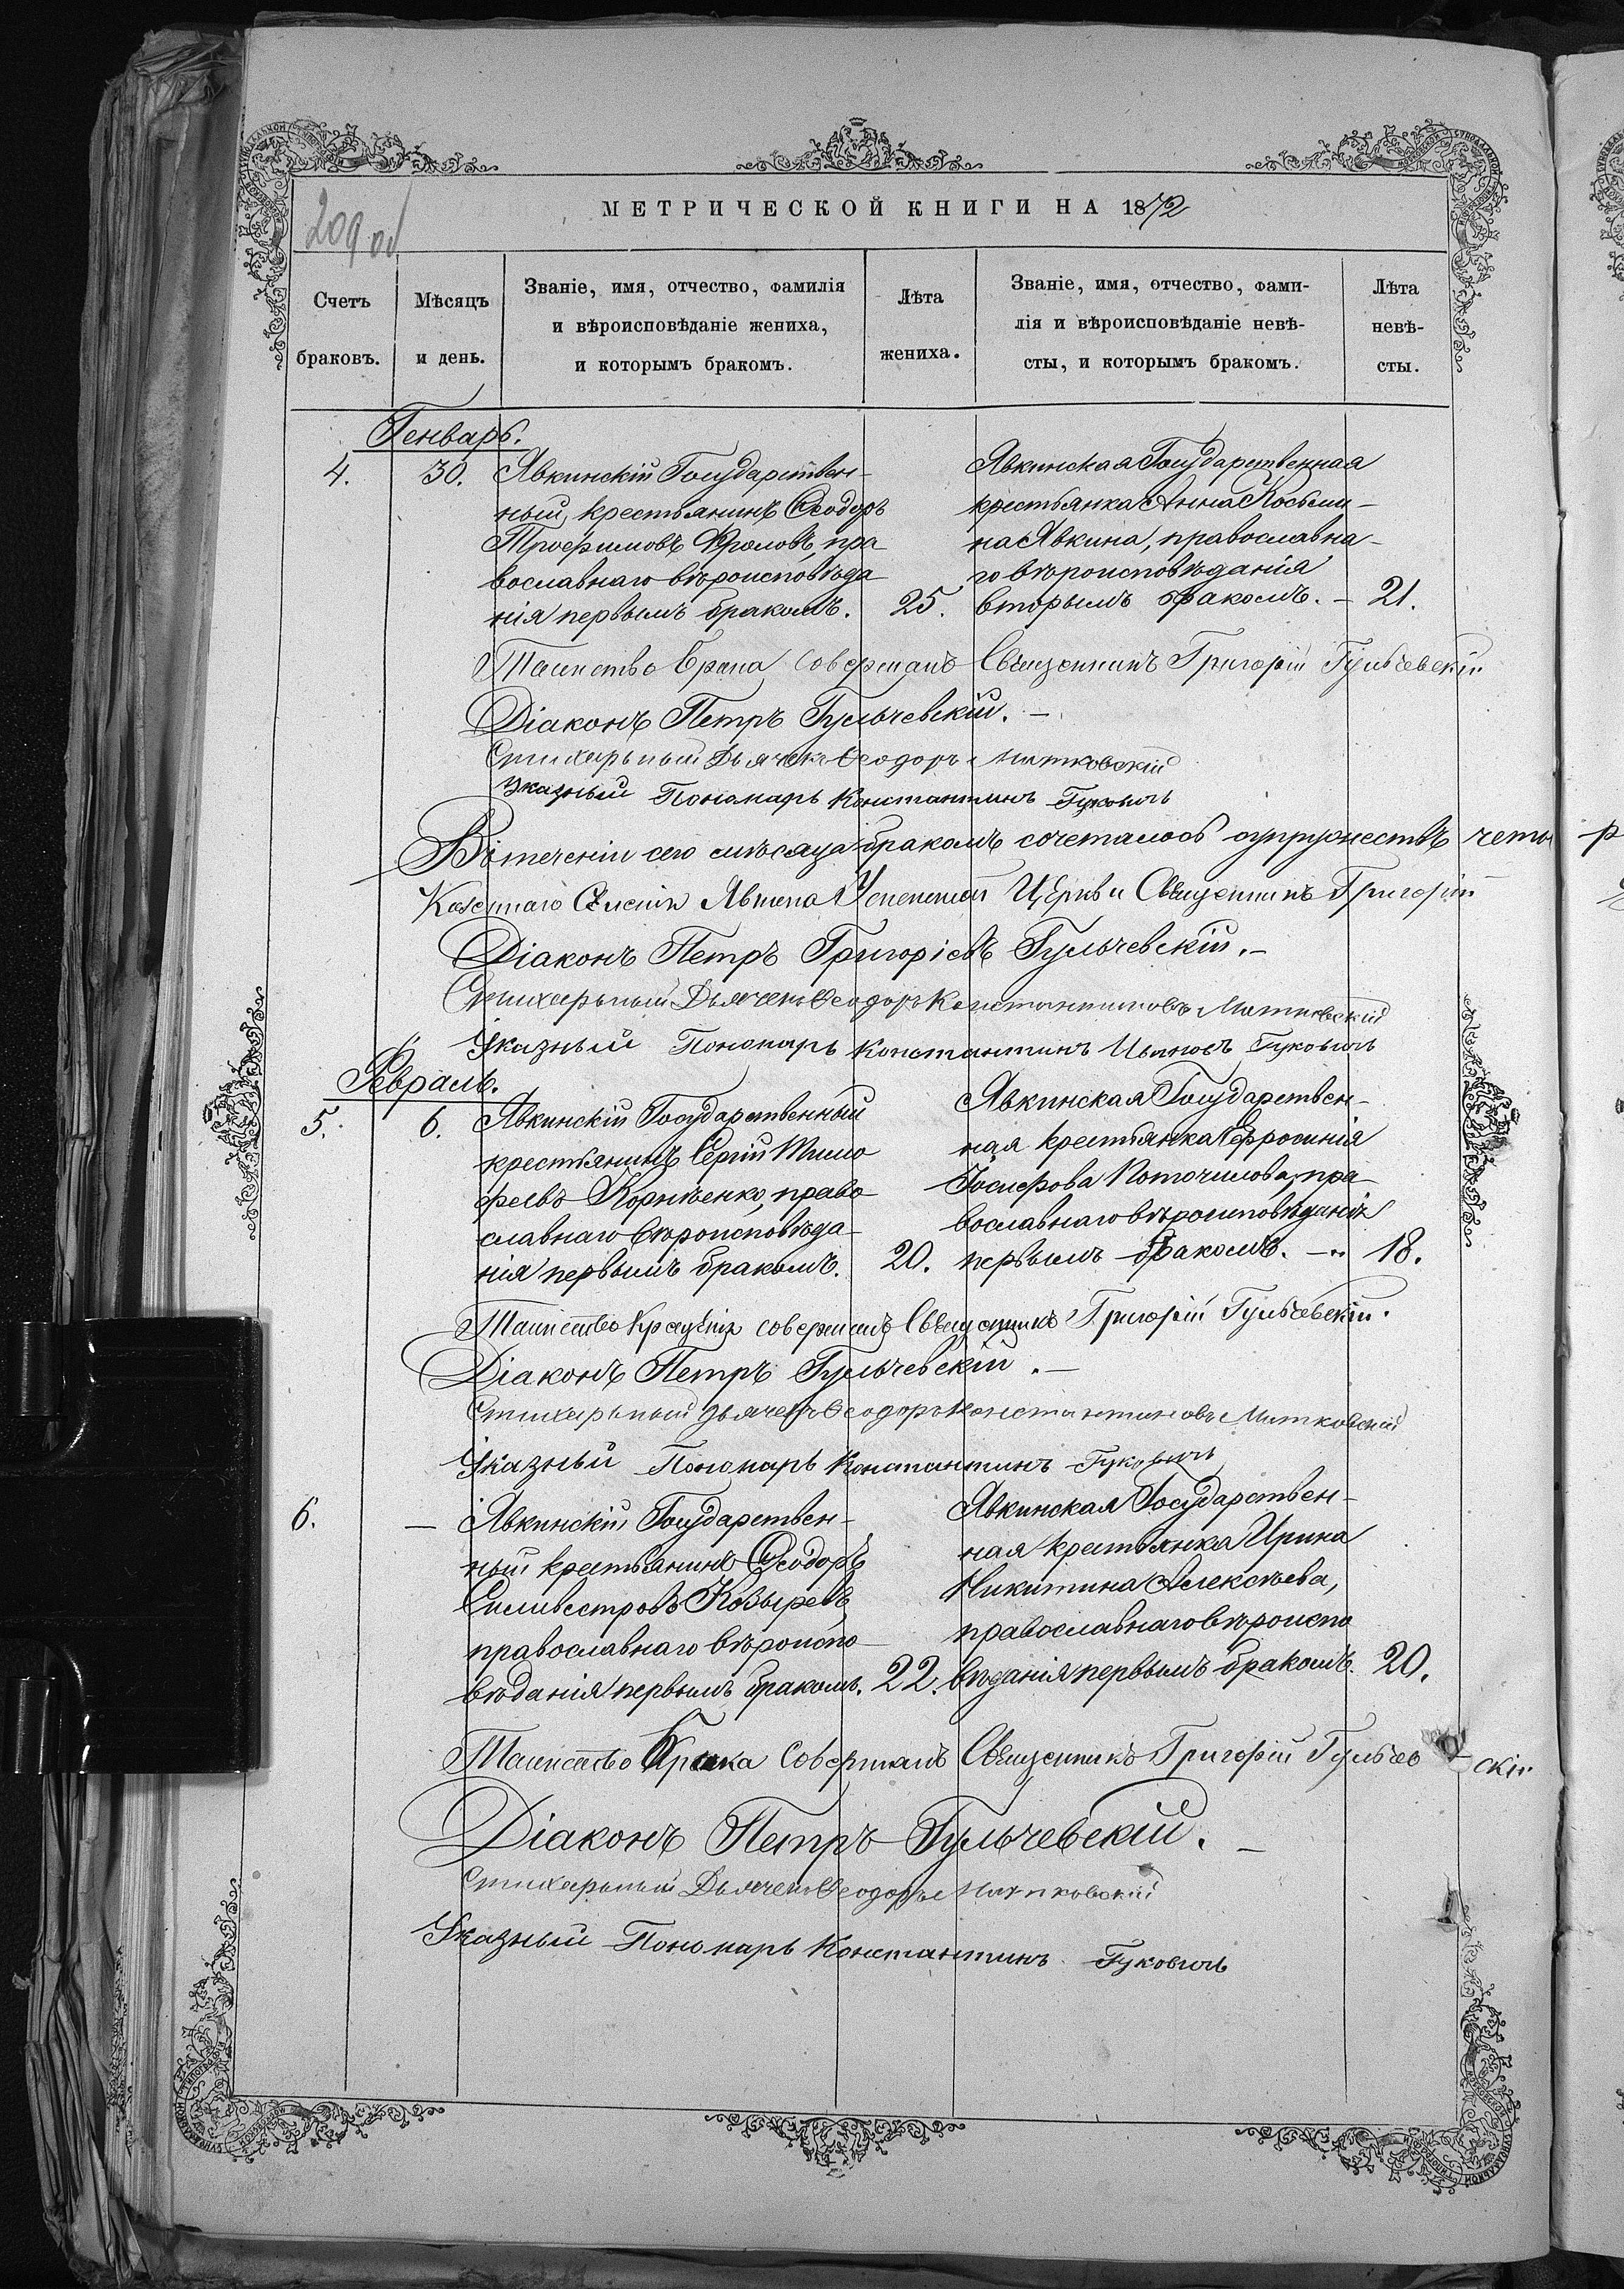 209 об
МЕТРИЧЕСКОЙ КНИГИ НА 1872
Счетъ браковъ.
Мѣсяцъ и день.
Званіе, имя, отчество, фамилія
и вѣроисповѣданіе жениха,
и которымъ бракомъ.
Лѣта жениха.
Званіе, имя, отчество, фами-
лія и вѣроисповѣданіе невѣ-
сты, и которымъ бракомъ.
Лѣта невѣ-
сты.
Генварь.
4. 30. Явкинскій Государствен-
ный крестьянинъ Ѳеодоръ
Трофимовъ Фроловъ, пра
вославнаго вѣроисповѣда
нія первымъ бракомъ. 25.
Явкинская Государственная
крестьянка Анна Косьми-
на Явкина, православна-
го вѣроисповѣданія
вторымъ бракомъ. – 21.
Таинство брака совершалъ Священникъ Григорій Гульчевскій
Діаконъ Петръ Гульчевскій. –
Стихарный Дьячекъ Ѳеодоръ Митковскій
Указный Пономарь Константинъ Гуковичъ
Въ теченіи сего мѣсяца бракомъ сочеталось супружествъ четы р
Казеннаго Селенія Явкина Успенской Церкви Священникъ Григорій
Діаконъ Петръ Григоріевъ Гульчевскій. –
Стихарный Дьячекъ Ѳеодоръ Константиновъ Митковскій
Указный Пономарь Константинъ Ивановъ Гуковичъ
Февраль.
5. 6. Явкинскій Государственный
крестьянинъ Сергій Тимо
феевъ Корнѣенко, право
славнаго вѣроисповѣда
нія первымъ бракомъ. 20.
Явкинская Государствен-
ная крестьянка Ефросинія
Іосифова Поточилова, пра-
вославнаго вѣроисповѣданія
первымъ бракомъ. – 18.
Таинство совершалъ Священникъ Григорій Гульчевскій.
Діаконъ Петръ Гульчевскій. –
Стихарный Дьячекъ Ѳеодоръ Константиновъ Митковскій
Указный Пономарь Константинъ Гуковичъ
6. – Явкинскій Государствен-
ный крестьянинъ Ѳеодоръ
Силивестровъ Козыревъ,
православнаго вѣроиспо-
вѣданія первымъ бракомъ. 22.
Явкинская Государствен-
ная крестьянка Ирина
Никитина Алексѣева,
православнаго вѣроиспо
вѣданія первымъ бракомъ. 20.
Таинство Брака Совершалъ Священникъ Григорій Гульчев скій
Діаконъ Петръ Гульчевскій. –
Стихарный Дьячекъ Ѳеодоръ Митковскій
Указный Пономарь Константинъ Гуковичъ